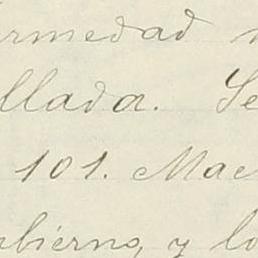 ermedad
llada. Se
101. Mac
bierno, y lo